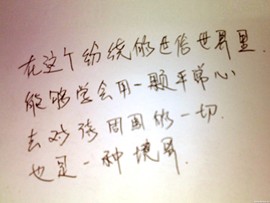 在这个纷绕的世俗世界里.
能够学会用一颗平常心
去对待周围的一切.
也是一种境界.